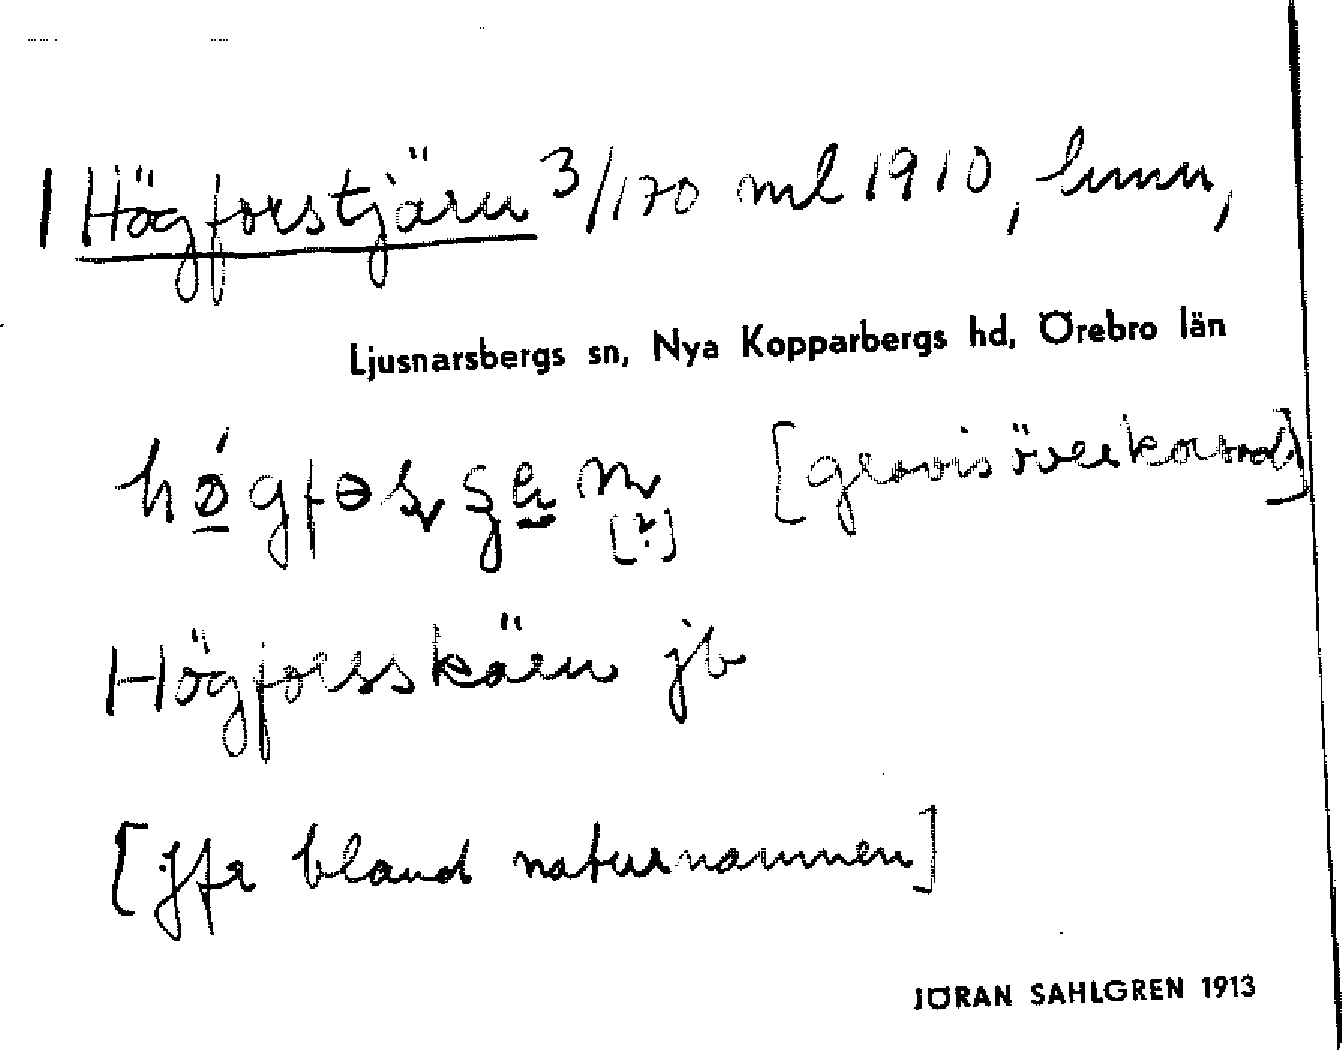 1 Högforstjärn 3/170 ml 1910,
Ljusnarsbergs sn, Nya Kopparbergs hd, Örebro län
[gravis överkorsad]
Högforsskärn jb
[Jfr bland naturnamnen]
JÖRAN SAHLGREN 1913